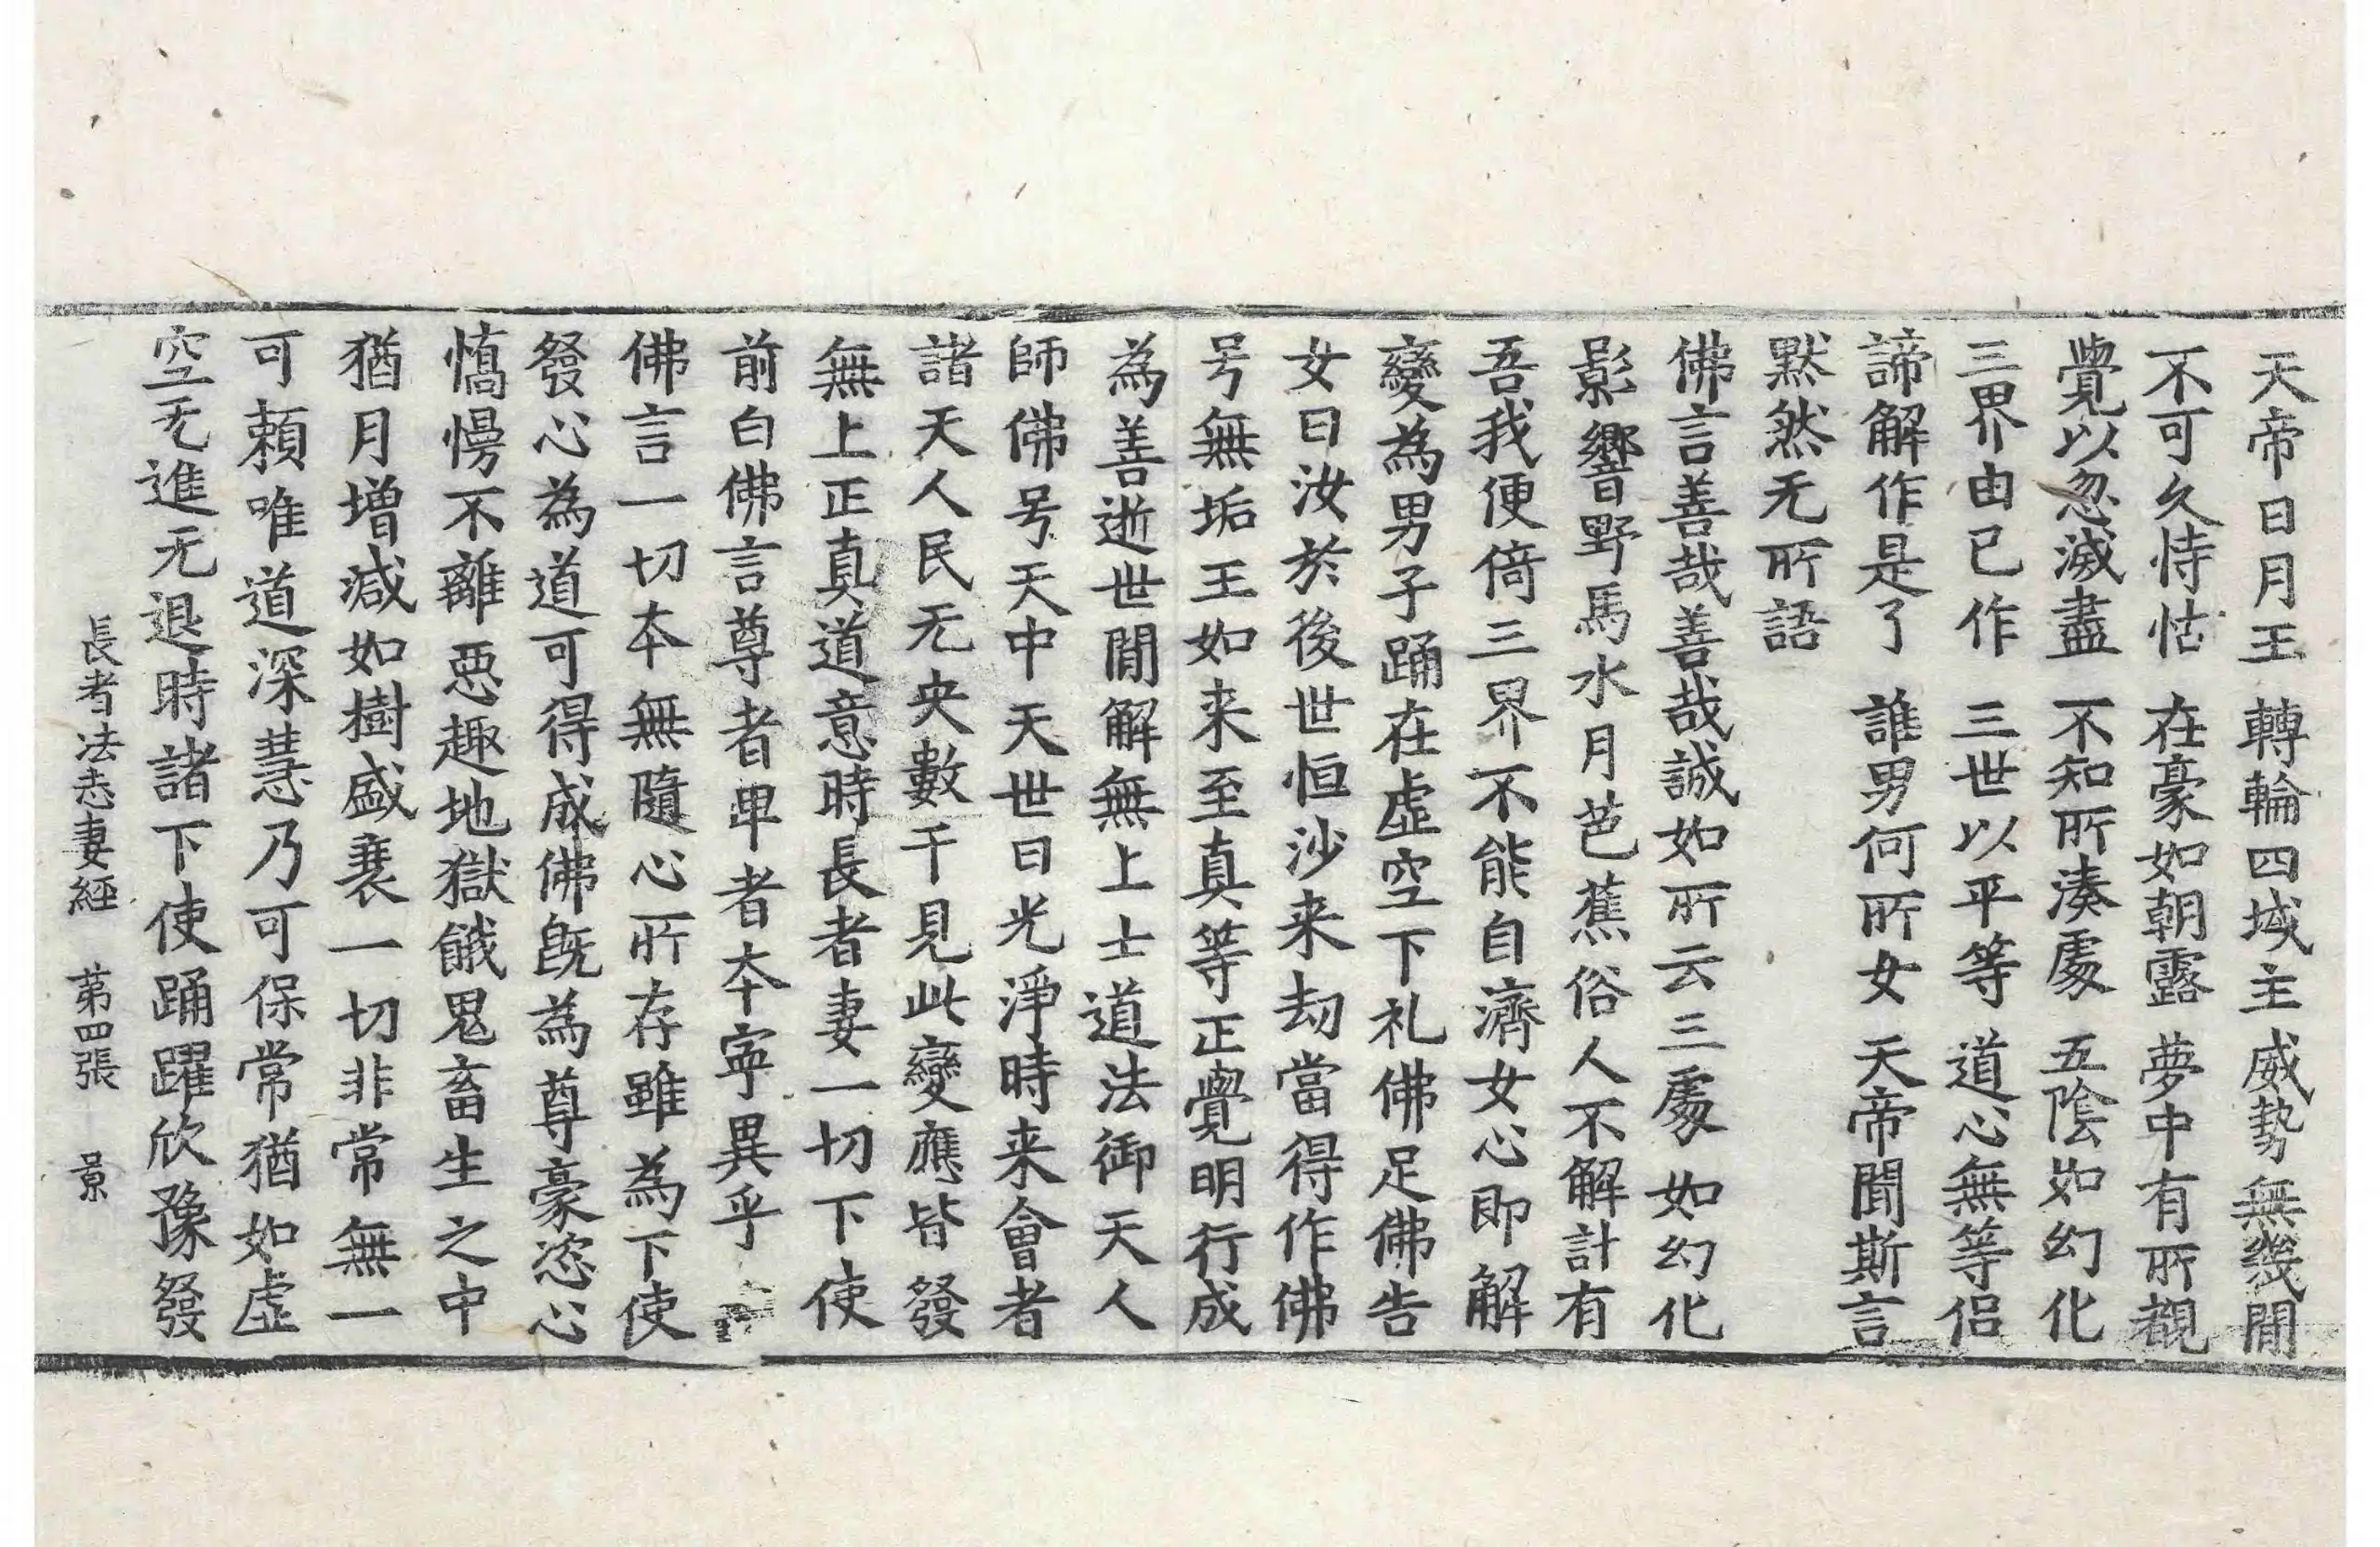 天帝日月王　轉輪四域主　威勢無幾間
不可久恃怙　在豪如朝露　夢中有所覩
覺以忽滅盡　不知所湊處　五陰如幻化
三界由已作　三世以平等　道心無等侶
諦解作是了　誰男何所女　天帝聞斯言
默然无所語
佛言善哉善哉誠如所云三處如幻化
影響野馬水月芭蕉俗人不解計有
吾我便倚三界不能自濟女心即解
變為男子踊在虛空下礼佛足佛告
女曰汝於後世恒沙来劫當得作佛
号無垢王如来至真等正覺明行成
為善逝世間解無上士道法御天人
師佛号天中天世曰光淨時来會者
諸天人民无央數千見此變應皆發
無上正真道意時長者妻一切下使
前白佛言尊者卑者本寧異乎
佛言一切本無隨心所存雖為下使
發心為道可得成佛既為尊豪恣心
憍慢不離惡趣地獄餓鬼畜生之中
猶月增減如樹盛衰一切非常無一
可賴唯道深慧乃可保常猶如虛
空无進无退時諸下使踊躍欣豫發
長者法志妻經　第四張　景